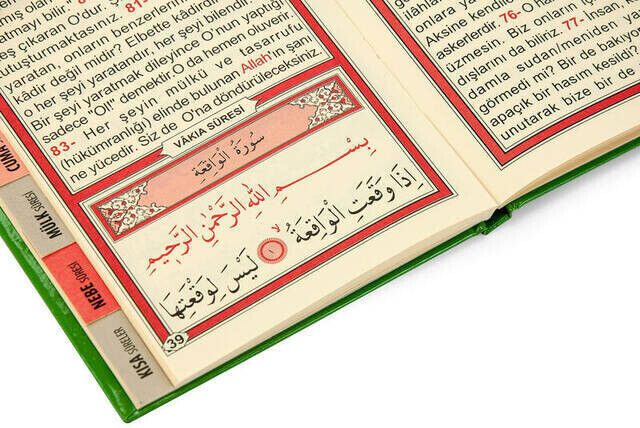 mış olan
atmayı bilir.
eş çıkaran O'dur.
ratan, onların benzerlerini
tuşturmaktasınız.
kâdir değil midir? Elbette kâdirdir.
yaratan,
O her şeyi yaratandır, her şeyi bilendir.
Bir şeyi yaratmak dileyince O'nun yaptığı
sadece "Ol!" demektir O da hemen oluverir.
83- Her şeyin mülkü ve tasarrufu
(hükümranlığı) elinde bulunan Allah'ın şanı
ne yücedir. Siz de O'na döndürüleceksiniz.
VÂKIA SÛRESİ
سُورَةُ الْوَاقِعَةِ
بِسْمِ اللّٰهِ الرَّحْمٰنِ الرَّحٖيمِ
اِذَا وَقَعَتِ الْوَاقِعَةُۙ
﴿١﴾ لَيْسَ لِوَقْعَتِهَا
39
CUMA
MÜLK SÛRESİ
NEBE SÛRESİ
KISA SÛRELER
ilâhları
onlara ya
Aksine kendil
askerlerdir. 76- O ha
üzmesin. Biz onların
dışlarını da biliriz. 77- İnsan,
damla sudan/meniden ya
görmedi mi? Bir de bakıyo
apaçık bir hasım kesildi?
unutarak bize bir de